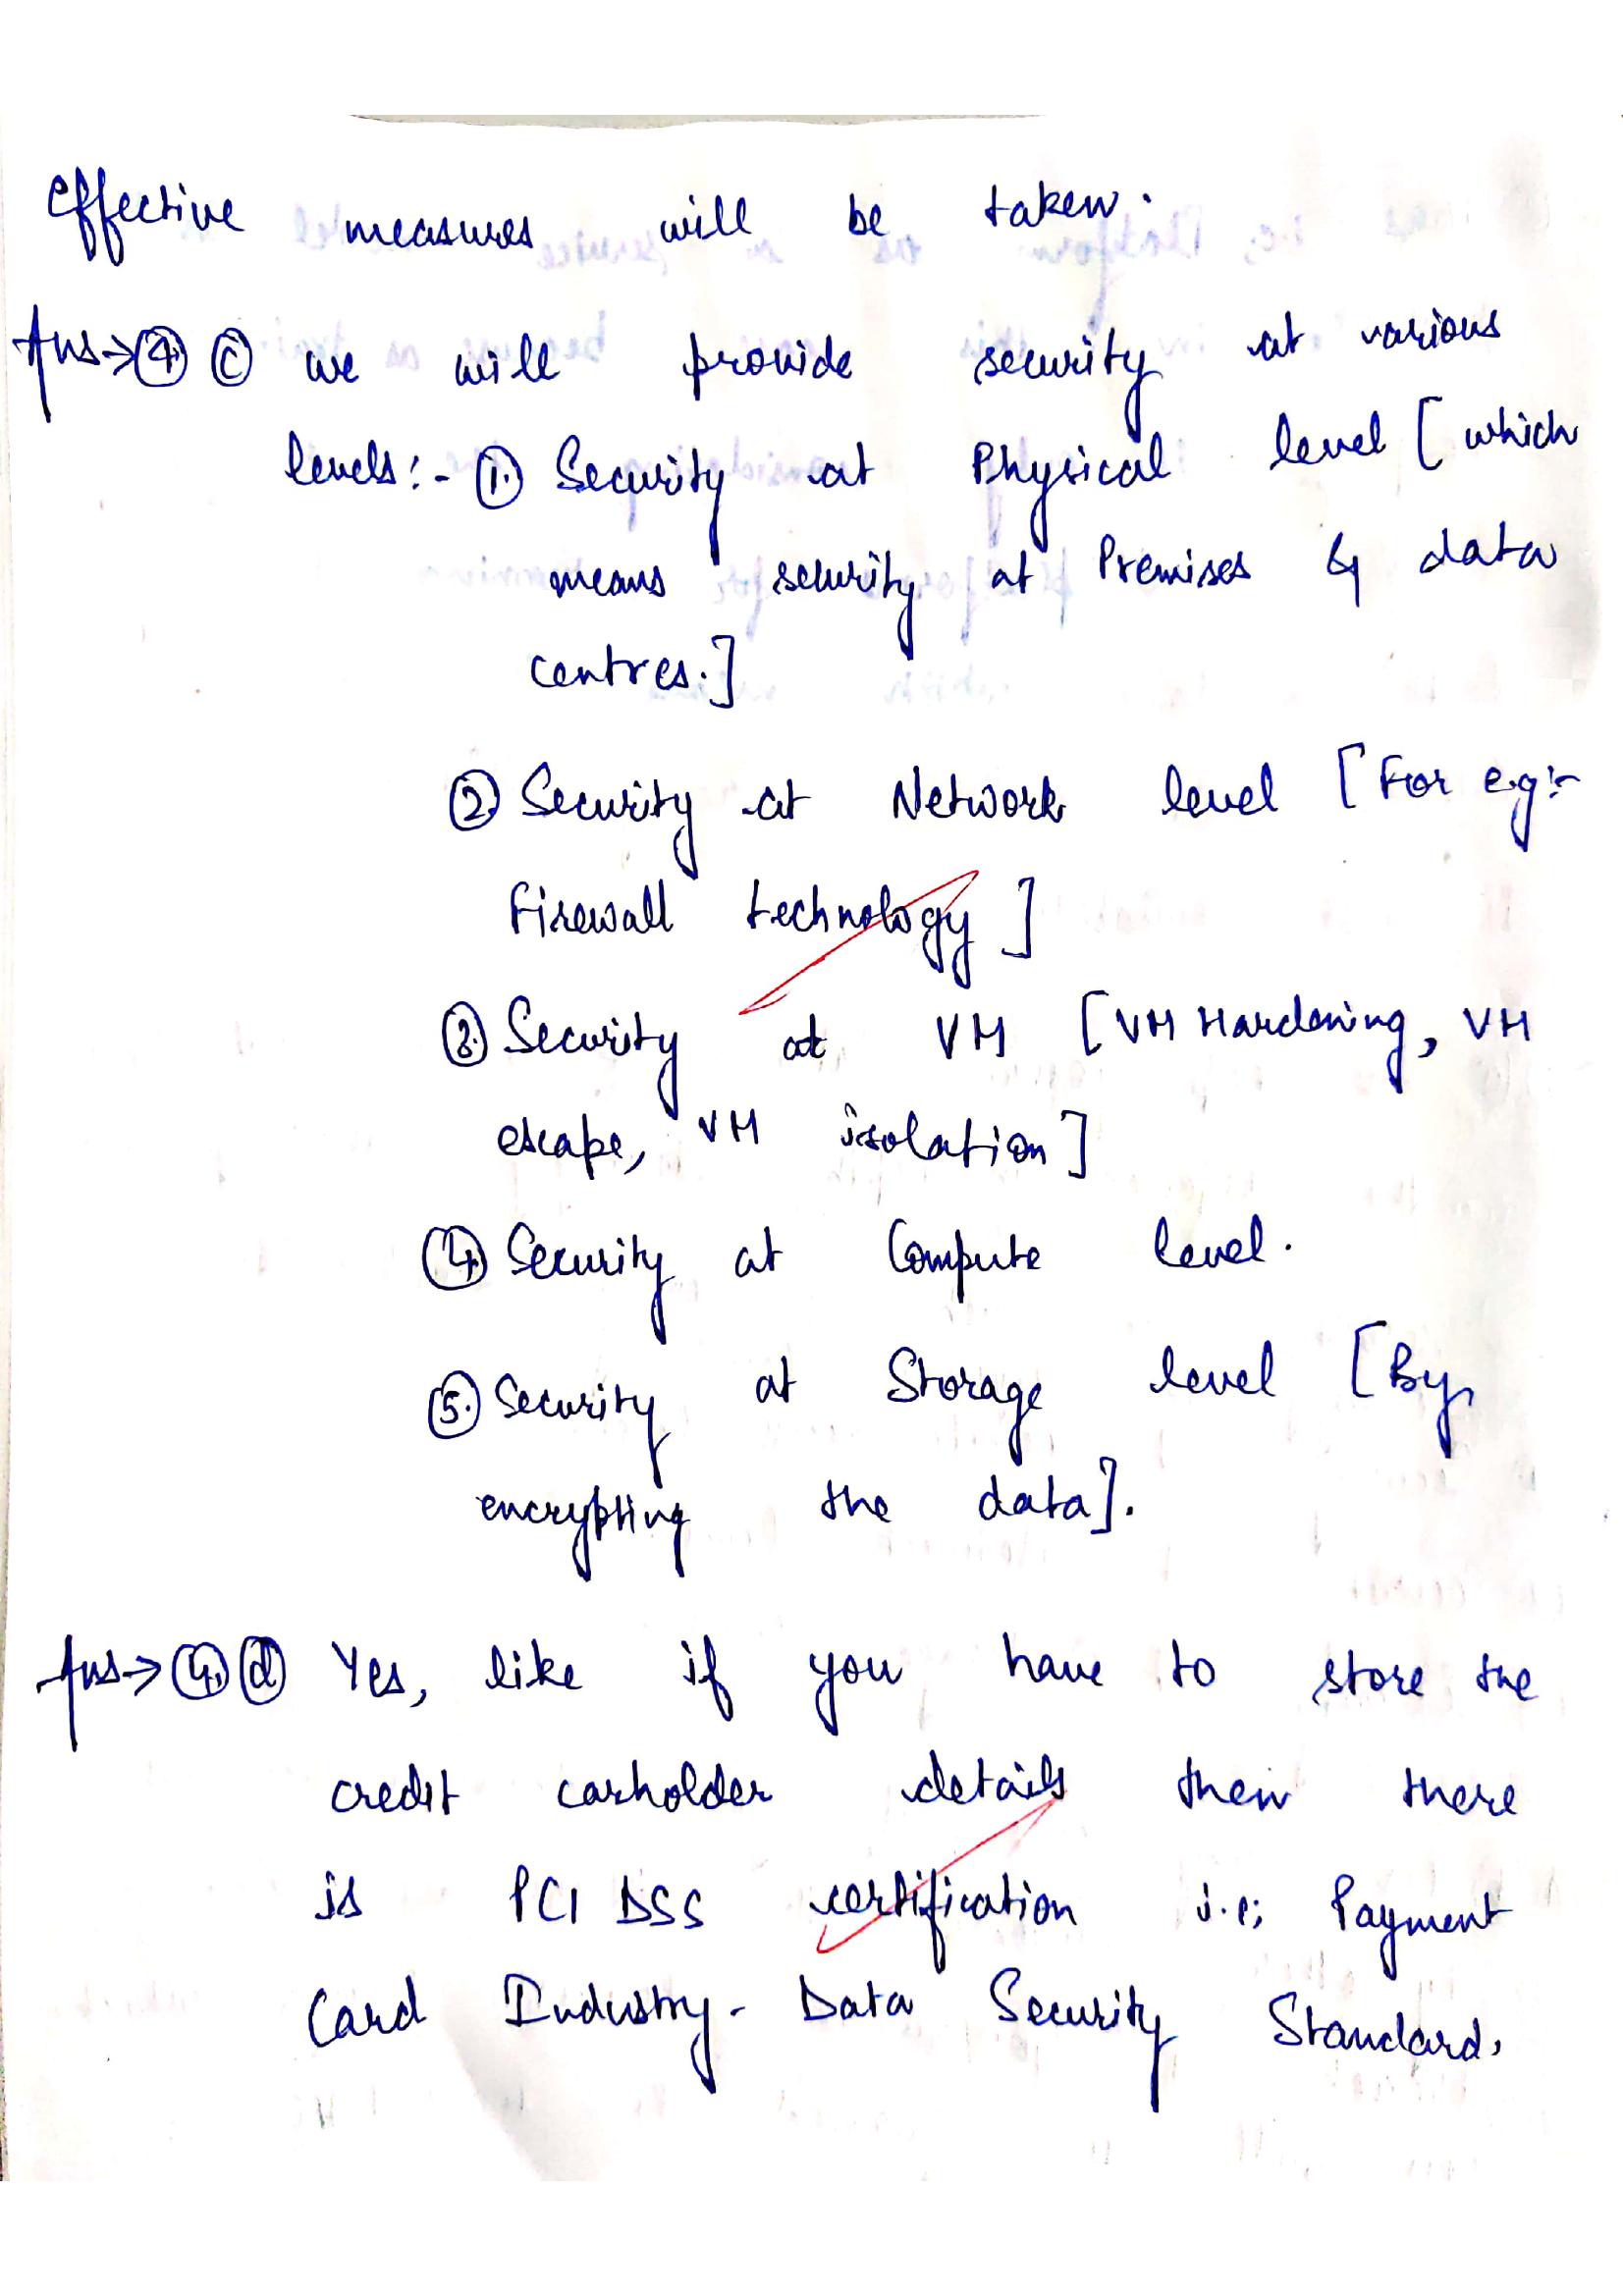 effective measures will be taken.
Ans→ ④ ⓒ we will provide security at various
levels:- ① Security at Physical level [which
means security at Premises & data
centres.]
② Security at Network level [For e.g:-
Firewall technology]
③ Security at VM [VM Hardening, VM
escape, VM isolation]
④ Security at Compute level.
⑤ Security at Storage level [By
encrypting the data].
Ans→ ④ ⓓ Yes, like if you have to store the
credit carholder details then there
is PCI DSS certification i.e; Payment
Card Industry - Data Security Standard.